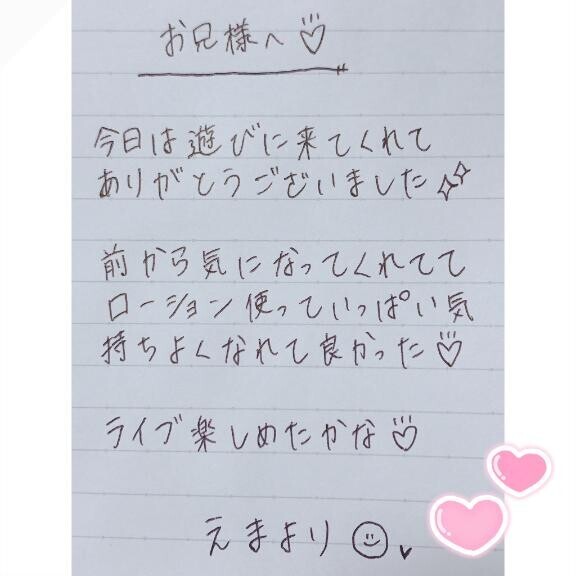 お兄様へ♡
今日は遊びに来てくれて
ありがとうございました✧✧
前から気になってくれてて
ローション使っていっぱい気
持ちよくなれて良かった♡
ライブ楽しめたかな♡
えまより☺♥